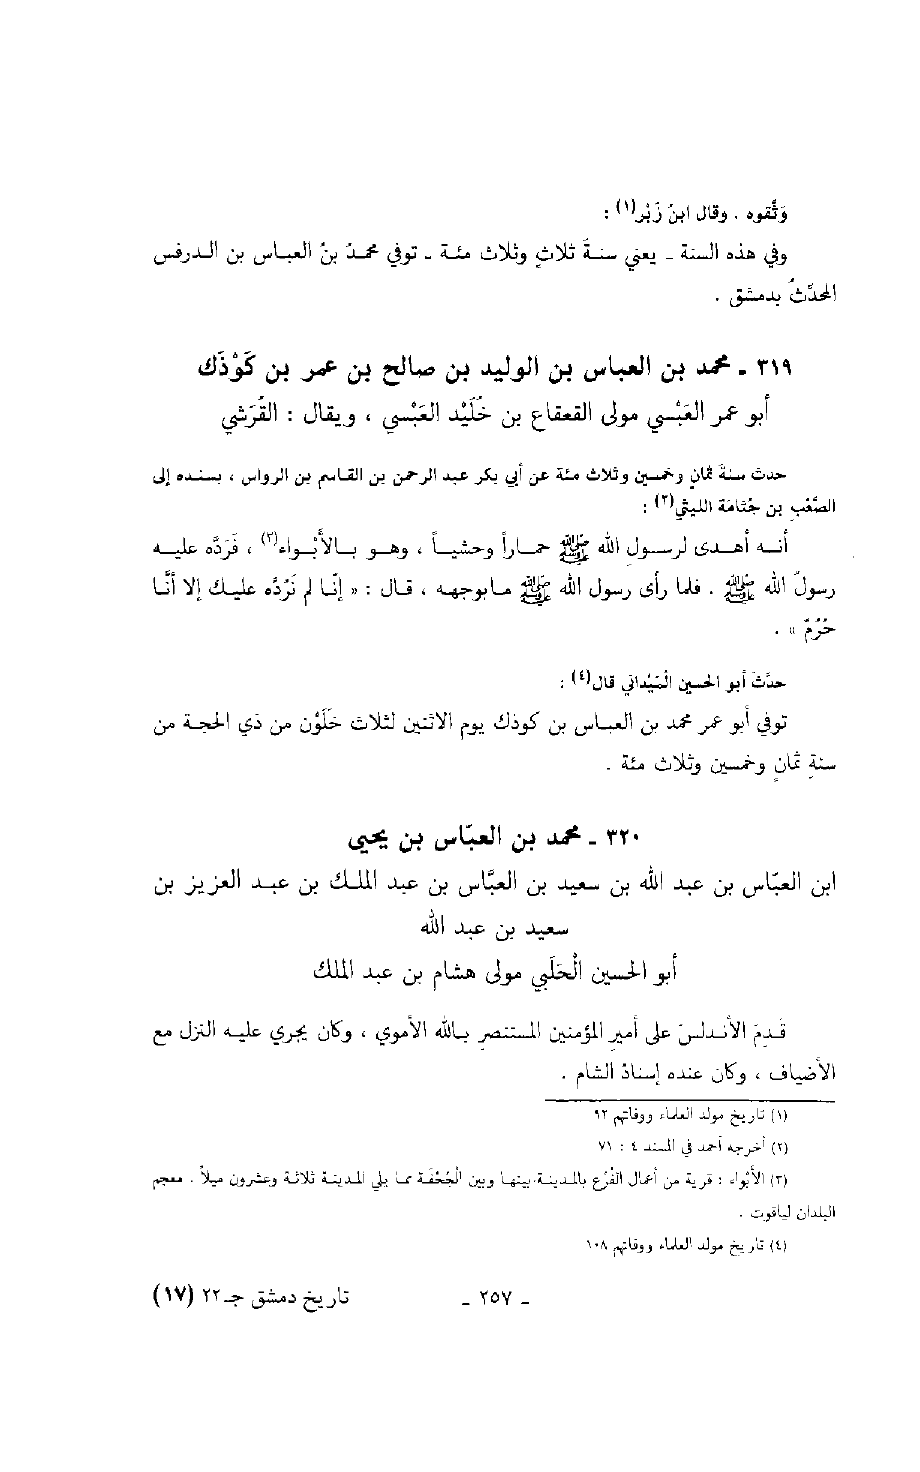 وَثَّقوه . وقال ابنُ زَبْر(١) :
وفي هذه السنة ـ يعني سنةَ ثلاثٍ وثلاث مئة ـ توفي محمدُ بنُ العباس بن الدرفس
المحدِّثُ بدمشق .
٣١٩ ـ محمد بن العباس بن الوليد بن صالح بن عمر بن كَوْذَك
أبو عمر العَبْسي مولى القعقاع بن خُلَيْد العَبْسي ، ويقال : القُرَشي
حدث سنةَ ثمانٍ وخمسين وثلاث مئة عن أبي بكر عبد الرحمن بن القاسم بن الرواس ، بسنده إلى
الصَّعْبِ بن جَثّامَة الليثي(٢) :
أنه أهدى لرسولِ الله ﷺ حماراً وحشياً ، وهو بالأَبْواء(٣) ، فَرَدَّه عليه
رسولُ الله ﷺ . فلما رأى رسول الله ﷺ مابوجهه ، قال : « إنّا لم نَرُدَّه عليك إلا أنَّا
حُرُمٌ » .
حدَّث أبو الحسين الْمَيْداني قال(٤) :
توفي أبو عمر محمد بن العباس بن كوذك يوم الاثنين لثلاث خَلَوْن من ذي الحجة من
سنةِ ثمانٍ وخمسين وثلاث مئة .
٣٢٠ ـ محمد بن العبّاس بن يحيى
ابن العبّاس بن عبد الله بن سعيد بن العبَّاس بن عبد الملك بن عبد العزيز بن
سعيد بن عبد الله
أبو الحسين الْحَلَبي مولى هشام بن عبد الملك
قدِمَ الأندلسَ على أميرِ المؤمنين المستنصرِ بالله الأموي ، وكان يجري عليه النزل مع
الأضياف ، وكان عنده إسنادُ الشام .
(١) تاريخ مولد العلماء ووفاتهم ٩٢
(٢) أخرجه أحمد في المسند ٤ : ٧١
(٣) الأَبْواء : قرية من أعمال الفُرْع بالمدينة بينها وبين الْجُحْفَة مما يلي المدينة ثلاثة وعشرون ميلاً . معجم
البلدان لياقوت .
(٤) تاريخ مولد العلماء ووفاتهم ١٠٨
ـ ٢٥٧ ـ تاريخ دمشق جـ٢٢ (١٧)